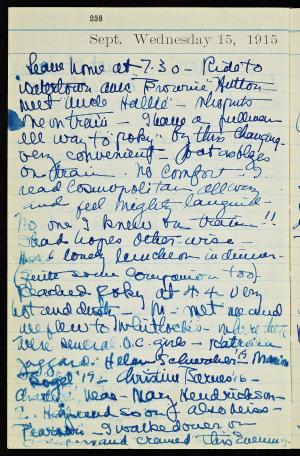 258
Sept. Wednesday 15, 1915
Leave home at 7.30 - Ride to
Watertown and "Brownie" Hutton
meet Uncle Hallie -
me on train - I have a pullman
all way to "poky" by this changing -
very convenient -
on train. No comfort - I
read Cosmopolitan all way
and feel mighty languid -
No one I knew on train!!
Had hopes other wise -
a lonely luncheon in diner -
(Quite some companion too)
Reached Poky at 4 4 very
hot and dusty - M - met me and
we flew to Whitlock's - where
were several O.C. girls - Katherine
Helen Schwaher '19 Marion
'19 - Christine Barnes '16 -
Mary Hendrickson -
soon & also
Pearson - I walked over on
campus and this evening -